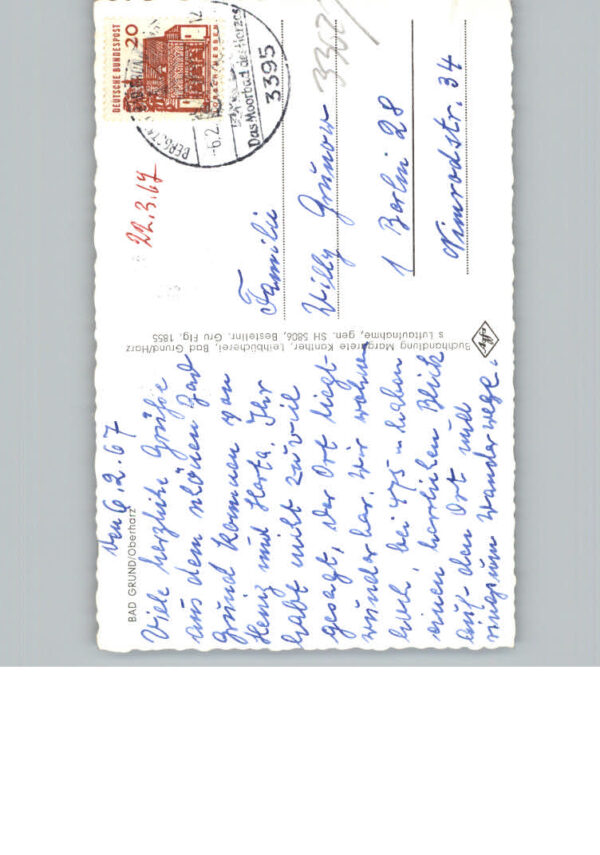 BAD GRUND/Oberharz
den 6.2.67
Viele herzliche Grüße
aus dem schönen Bad
Grund kommen von
Heinz und Herta. Ihr
habt nicht zuviel
gesagt, der Ort liegt
wunderbar. Wir wohnen
hoch, bei 475 m haben
einen herrlichen Blick
auf den Ort und
ringsum Wanderwege.
Buchhandlung Margarete Kanther, Leihbücherei, Bad Grund/Harz
s Luftaufnahme, gen. SH 5806, Bestellnr. Gru Flg. 1855
Agfa
DEUTSCHE BUNDESPOST
20
-6.2.
Das Moorbad des Harzes
3395
22.3.67
Familie
Willy Grunow
1 Berlin 28
Nimrodstr. 34